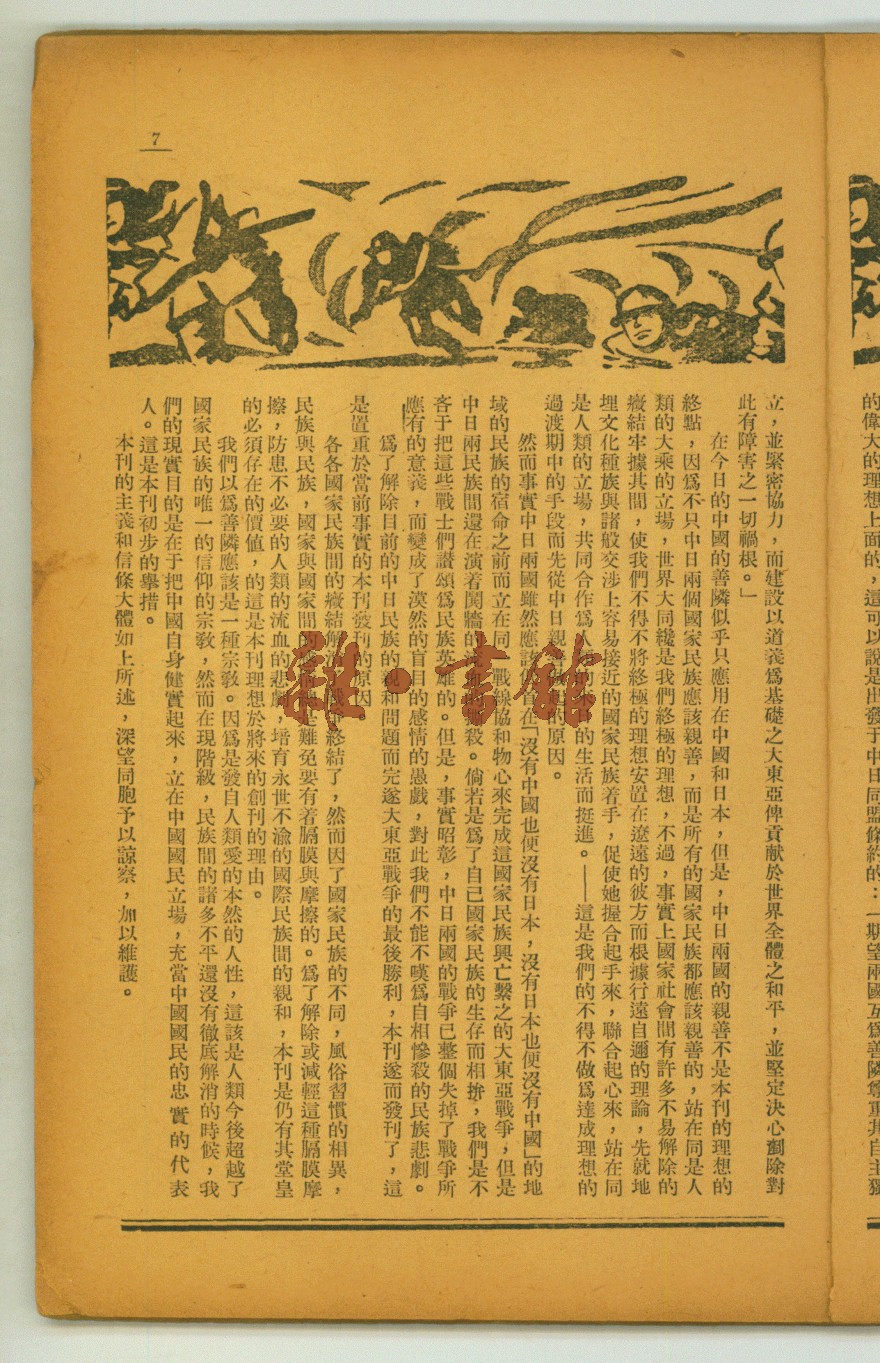 7
的偉大的理想上面的，這可以說是出發于中日同盟條約的：「期望兩國互爲善隣尊重其自主獨
立，並緊密協力，而建設以道義爲基礎之大東亞俾貢献於世界全體之和平，並堅定決心剷除對
此有障害之一切禍根。」
在今日的中國的善隣似乎只應用在中國和日本，但是，中日兩國的親善不是本刊的理想的
終點，因爲不只中日兩個國家民族應該親善，而是所有的國家民族都應該親善的，站在同是人
類的大乘的立場，世界大同纔是我們終極的理想，不過，事實上國家社會間有許多不易解除的
癥結牢據其間，使我們不得不將終極的理想安置在遼遠的彼方而根據行遠自邇的理論，先就地
埋文化種族與諸般交涉上容易接近的國家民族着手，促使她握合起手來，聯合起心來，站在同
是人類的立場，共同合作爲人 的 日的生活而挺進。——這是我們的不得不做爲達成理想的
過渡期中的手段而先從中日親 起的原因。
然而事實中日兩國雖然應該 皆在「沒有中國也便沒有日本，沒有日本也便沒有中國」的地
域的民族的宿命之前而立在同一戰線協和物心來完成這國家民族興亡繫之的大東亞戰爭，但是
中日兩民族間還在演着鬩牆的 殺。倘若是爲了自己國家民族的生存而相拚，我們是不
吝于把這些戰士們讚頌爲民族英雄的。但是，事實昭彰，中日兩國的戰爭已整個失掉了戰爭所
應有的意義，而變成了漠然的盲目的感情的愚戲，對此我們不能不嘆爲自相慘殺的民族悲劇。
爲了解除目前的中日民族的親和問題而完遂大東亞戰爭的最後勝利，本刊遂而發刊了，這
是置重於當前事實的本刊發刊的原因
各各國家民族間的癥結解消 戰爭終結了，然而因了國家民族的不同，風俗習慣的相異，
民族與民族，國家與國家間的 是難免要有着膈膜與摩擦的。爲了解除或減輕這種膈膜摩
擦，防患不必要的人類的流血的悲劇，培育永世不渝的國際民族間的親和，本刊是仍有其堂皇
的必須存在的價値，的這是本刊理想於將來的創刊的理由。
我們以爲善隣應該是一種宗敎。因爲是發自人類愛的本然的人性，這該是人類今後超越了
國家民族的唯一的信仰的宗敎，然而在現階級，民族間的諸多不平還沒有徹底解消的時候，我
們的現實目的是在于把中國自身健實起來，立在中國國民立場，充當中國國民的忠實的代表
人。這是本刊初步的擧措。
本刊的主義和信條大體如上所述，深望同胞予以諒察，加以維護。
雜·書館